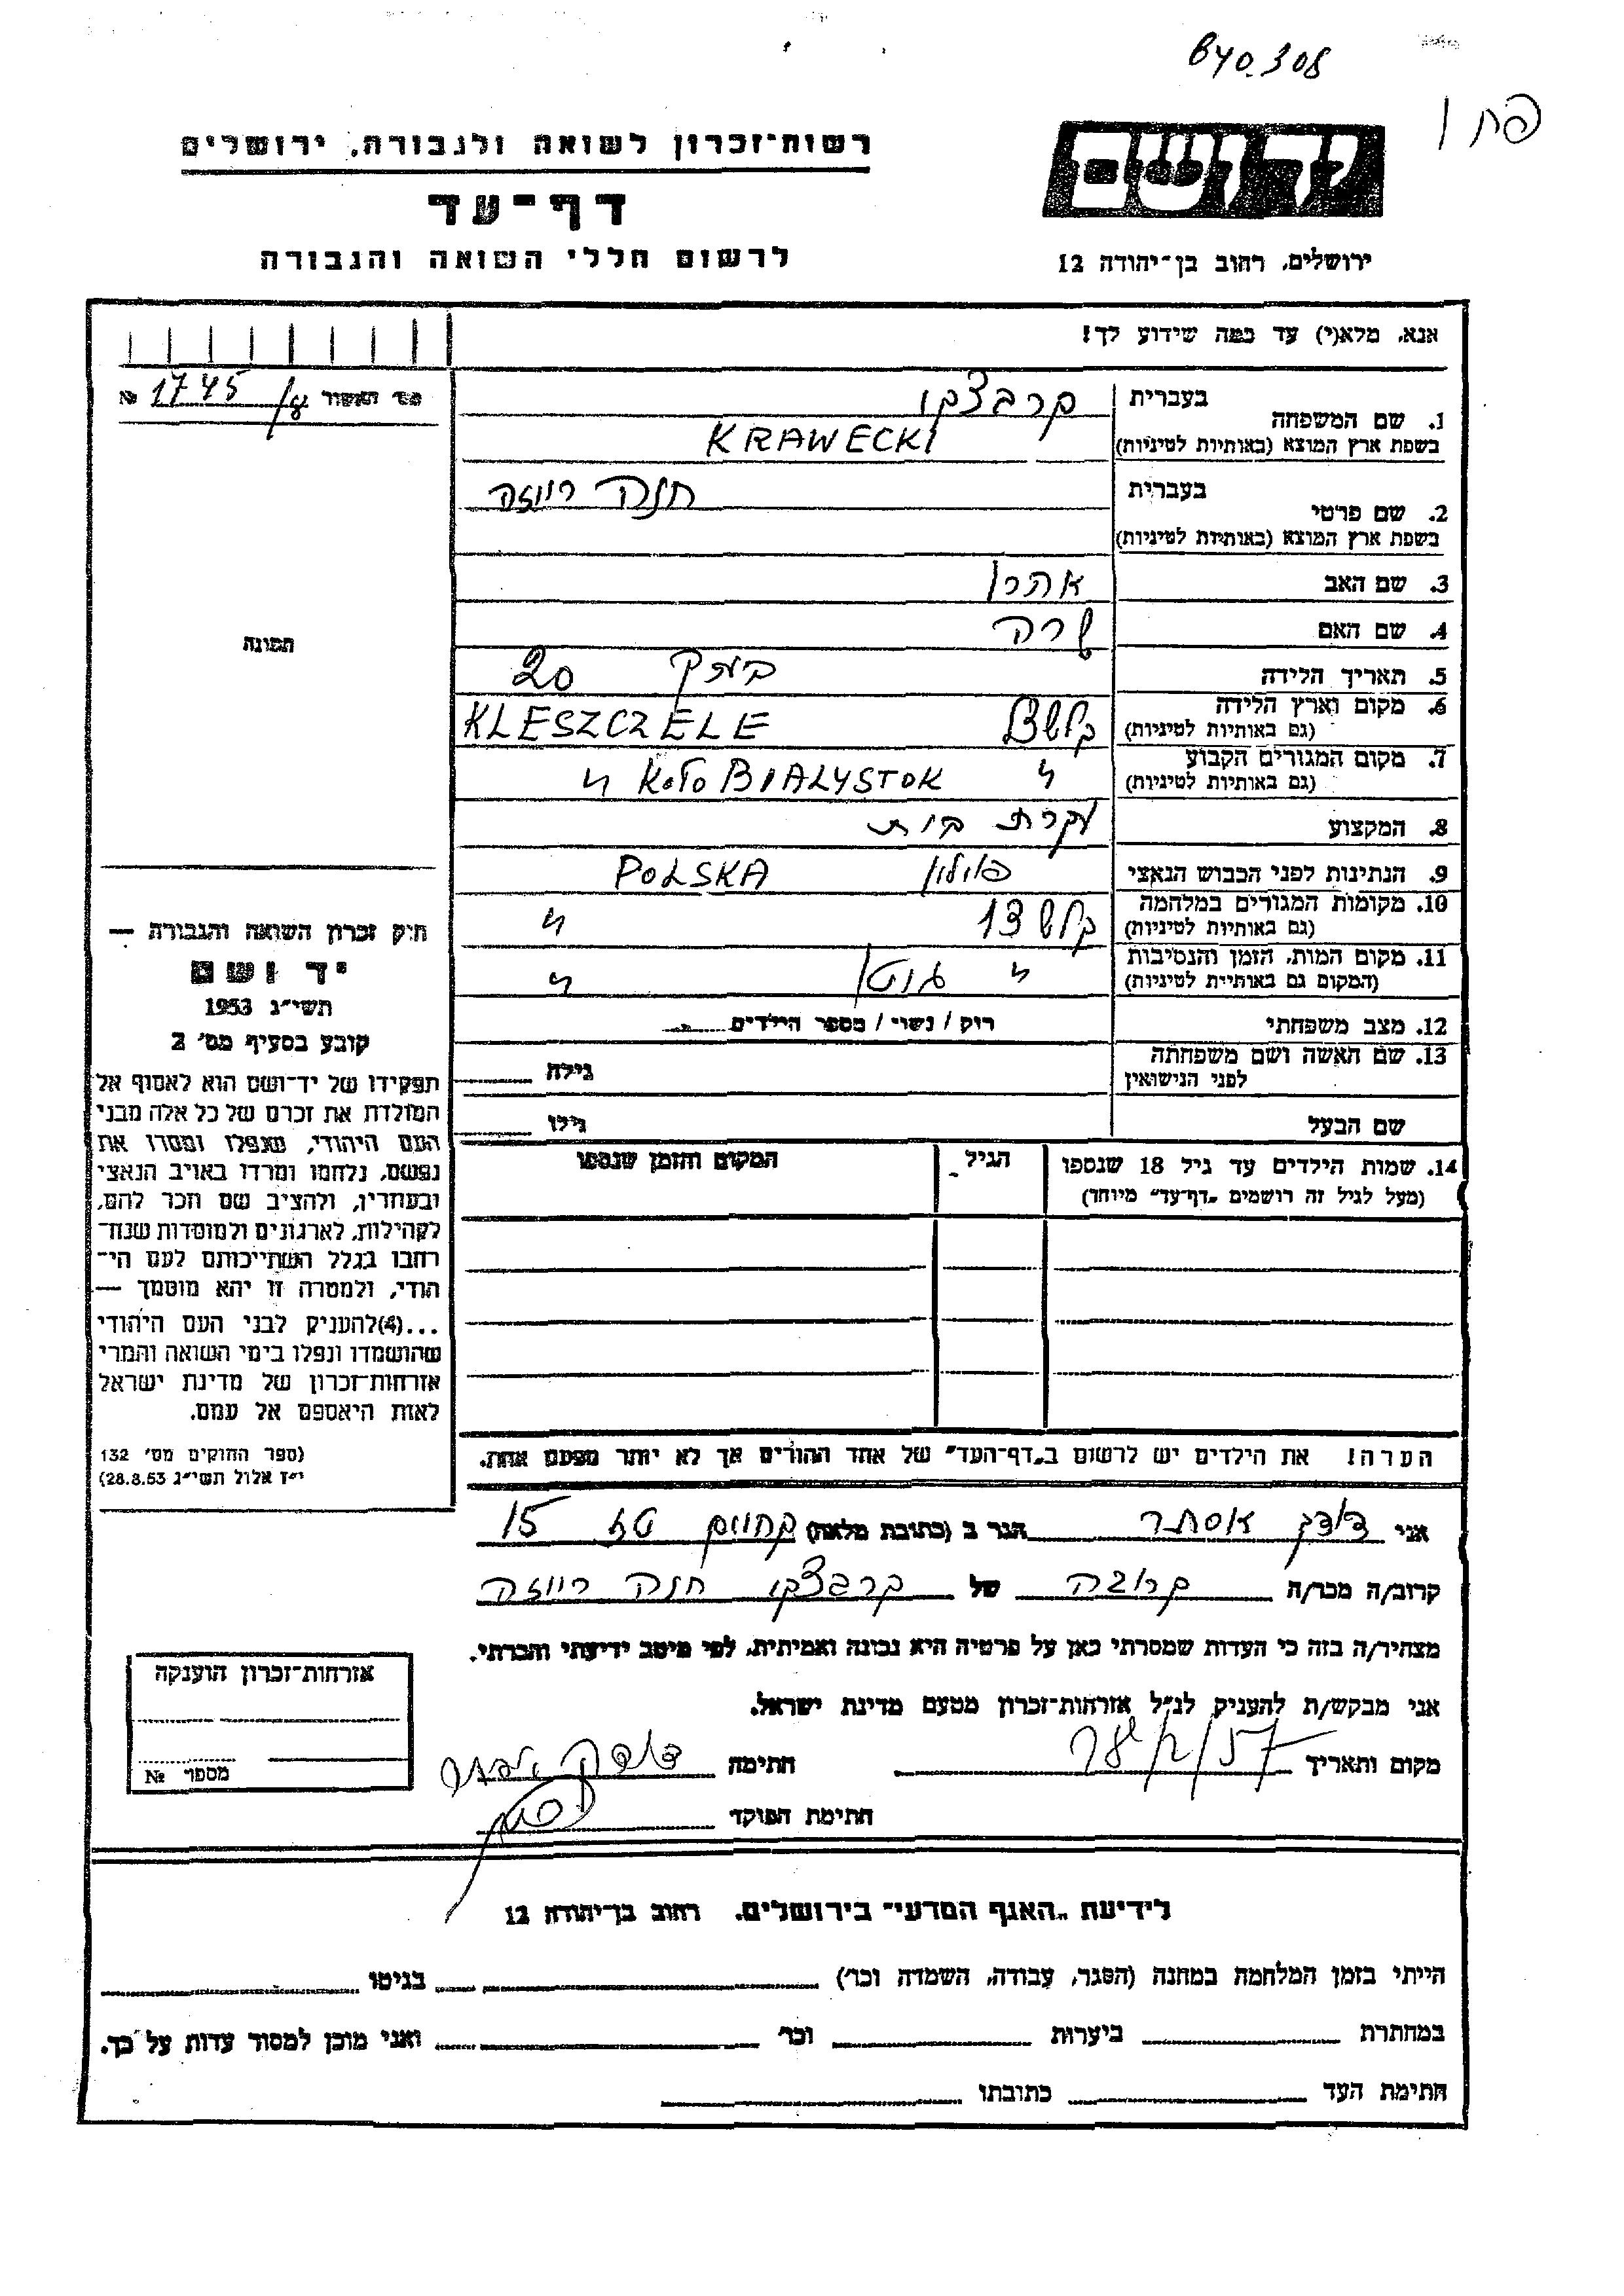 840.308
פח 1
רשות־זכרון לשואה ולגבורה, ירושלים
דף־עד
לרשום חללי השואה והגבורה
ידושם
ירושלים, רחוב בן־יהודה 12
אנא, מלא(י) עד כמה שידוע לך!
№ 1745
1. שם המשפחה
בעברית קרבצקי
בשפת ארץ המוצא (באותיות לטיניות) KRAWECKI
2. שם פרטי
בעברית חנה רייזה
בשפת ארץ המוצא (באותיות לטיניות)
3. שם האב אהרן
4. שם האם שרה
5. תאריך הלידה 20
6. מקום וארץ הלידה
(גם באותיות לטיניות) KLESZCZELE
7. מקום המגורים הקבוע
(גם באותיות לטיניות) " KOŁO BIALYSTOK "
8. המקצוע עקרת בית
9. הנתינות לפני הכבוש הנאצי פולין POLSKA
10. מקומות המגורים במלחמה
(גם באותיות לטיניות) "
11. מקום המות, הזמן והנסיבות
(המקום גם באותיות לטיניות) " גטו "
12. מצב משפחתי רוק / נשוי / מספר הילדים
13. שם האשה ושם משפחתה
לפני הנישואין גילה
שם הבעל גילו
14. שמות הילדים עד גיל 18 שנספו
(מעל לגיל זה רושמים „דף־עד” מיוחד)
הגיל
המקום והזמן שנספו
תמונה
חוק זכרון השואה והגבורה —
יד ושם
תשי"ג 1953
קובע בסעיף מס' 2
תפקידו של יד־ושם הוא לאסוף אל
המולדת את זכרם של כל אלה מבני
העם היהודי, שנפלו ומסרו את
נפשם, נלחמו ומרדו באויב הנאצי
ובעוזריו, ולהציב שם וזכר להם,
לקהילות, לארגונים ולמוסדות שנח־
רחבו בגלל השתייכותם לעם הי־
הודי, ולמטרה זו יהא מוסמך —
...(4)להעניק לבני העם היהודי
שהושמדו ונפלו בימי השואה והמרי
אזרחות־זכרון של מדינת ישראל
לאות היאספם אל עמם.
(ספר החוקים מס' 132
י"ז אלול תשי"ג 28.8.53)
הערה! את הילדים יש לרשום ב„דף־העד” של אחד ההורים אך לא יותר מפעם אחת.
אני אסתר הגר ב (כתובת מלאה) 15
קרוב/ה מכר/ה קרובה של קרבצקי חנה רייזה
מצהיר/ה בזה כי העדות שמסרתי כאן על פרטיה היא נכונה ואמיתית, לפי מיטב ידיעתי והכרתי.
אני מבקש/ת להעניק לנ"ל אזרחות־זכרון מטעם מדינת ישראל.
מקום ותאריך
חתימה
חתימת הפוקד
אזרחות־זכרון הוענקה
מספר №
לידיעת „האגף המדעי” בירושלים. רחוב בן־יהודה 12
הייתי בזמן המלחמה במחנה (הסגר, עבודה, השמדה וכר) בגיטו
במחתרת ביערות וכר ואני מוכן למסור עדות על כך.
חתימת העד כתובתו